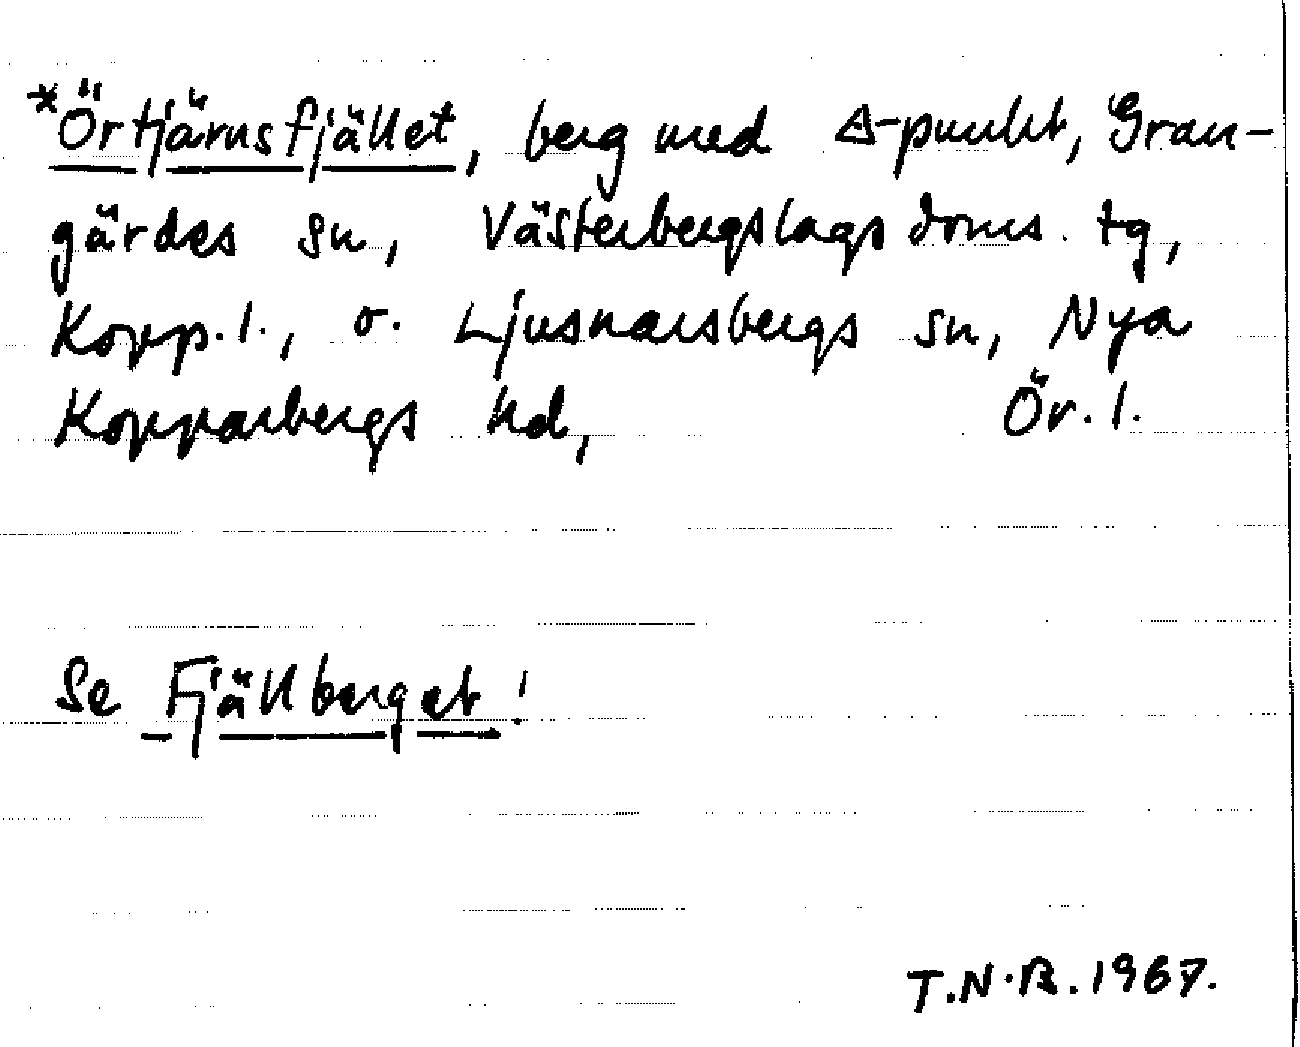 *Örtjärnsfjället, berg med △-punkt, Gran-
gärdes sn, Västerbergslags doms. tg,
Kopp. l., o. Ljusnarsbergs sn, Nya
Kopparbergs hd, Ör. l.
Se Fjällberget!
T.N.B. 1967.